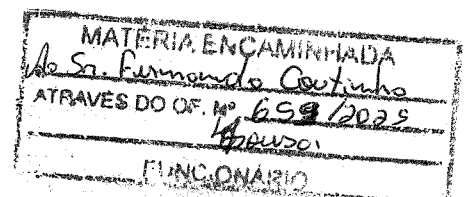 MATÉRIA ENCAMINHADA
Ao Sr. Fernando Coutinho
ATRAVÉS DO OF. Nº 659/2025
Sousa
FUNCIONÁRIO